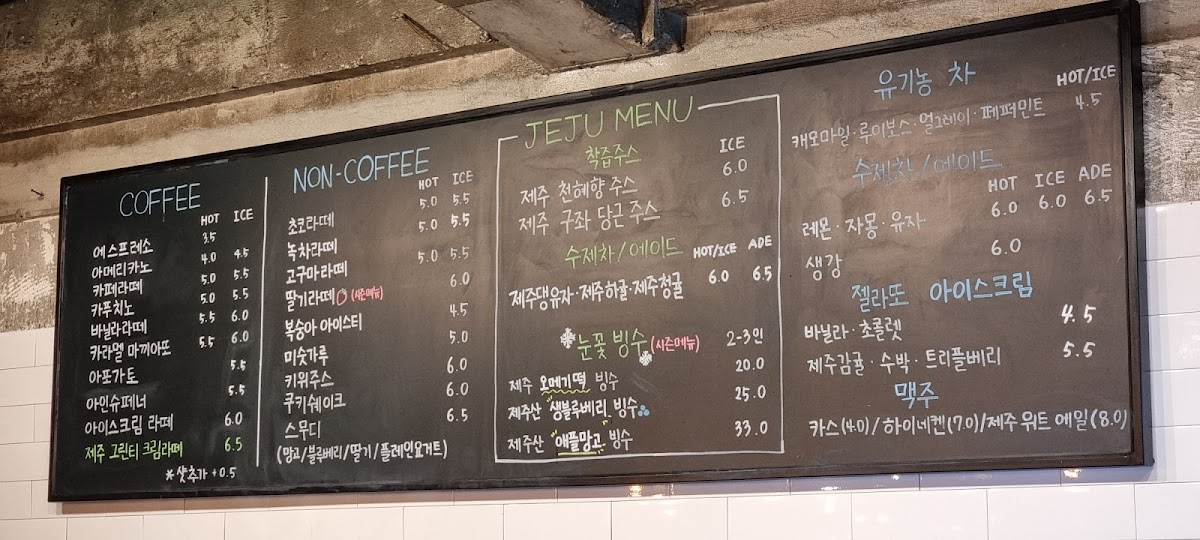 COFFEE
HOT ICE
에스프레소 3.5
아메리카노 4.0 4.5
카페라떼 5.0 5.5
카푸치노 5.0 5.5
바닐라라떼 5.5 6.0
카라멜 마끼아또 5.5 6.0
아포가토 5.5
아인슈페너 5.5
아이스크림 라떼 6.0
제주 그린티 크림라떼 6.5
*샷추가 +0.5
NON-COFFEE
HOT ICE
초코라떼 5.0 5.5
녹차라떼 5.0 5.5
고구마라떼 5.0 5.5
딸기라떼 (시즌메뉴) 6.0
복숭아 아이스티 4.5
미숫가루 5.0
키위주스 6.0
쿠키쉐이크 6.0
스무디 6.5
(망고/블루베리/딸기/플레인요거트)
JEJU MENU
착즙주스 ICE
제주 천혜향 주스 6.0
제주 구좌 당근 주스 6.5
수제차/에이드 HOT/ICE ADE
제주댕유자·제주하귤·제주청귤 6.0 6.5
눈꽃 빙수 (시즌메뉴) 2-3인
제주 오메기떡 빙수 20.0
제주산 생블루베리 빙수 25.0
제주산 애플망고 빙수 33.0
유기농 차 HOT/ICE
캐모마일·루이보스·얼그레이·페퍼민트 4.5
수제차/에이드
HOT ICE ADE
레몬·자몽·유자 6.0 6.0 6.5
생강 6.0
젤라또 아이스크림
바닐라·초콜렛 4.5
제주감귤·수박·트리플베리 5.5
맥주
카스(4.0)/하이네켄(7.0)/제주 위트 에일(8.0)